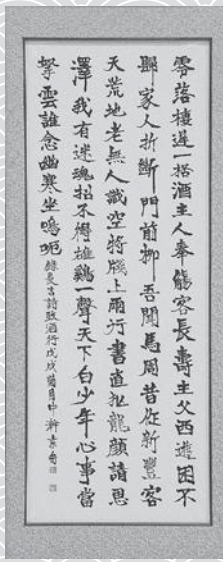 零落棲遲一桮酒主人奉觴客長壽主父西遊困不
歸家人折斷門前柳吾聞馬周昔作新豐客
天荒地老無人識空將牋上兩行書直犯龍顏請恩
澤我有迷魂招不得雄雞一聲天下白少年心事當
拏雲誰念幽寒坐嗚呃 錄長吉詩致酒行戊戌菊月中澣